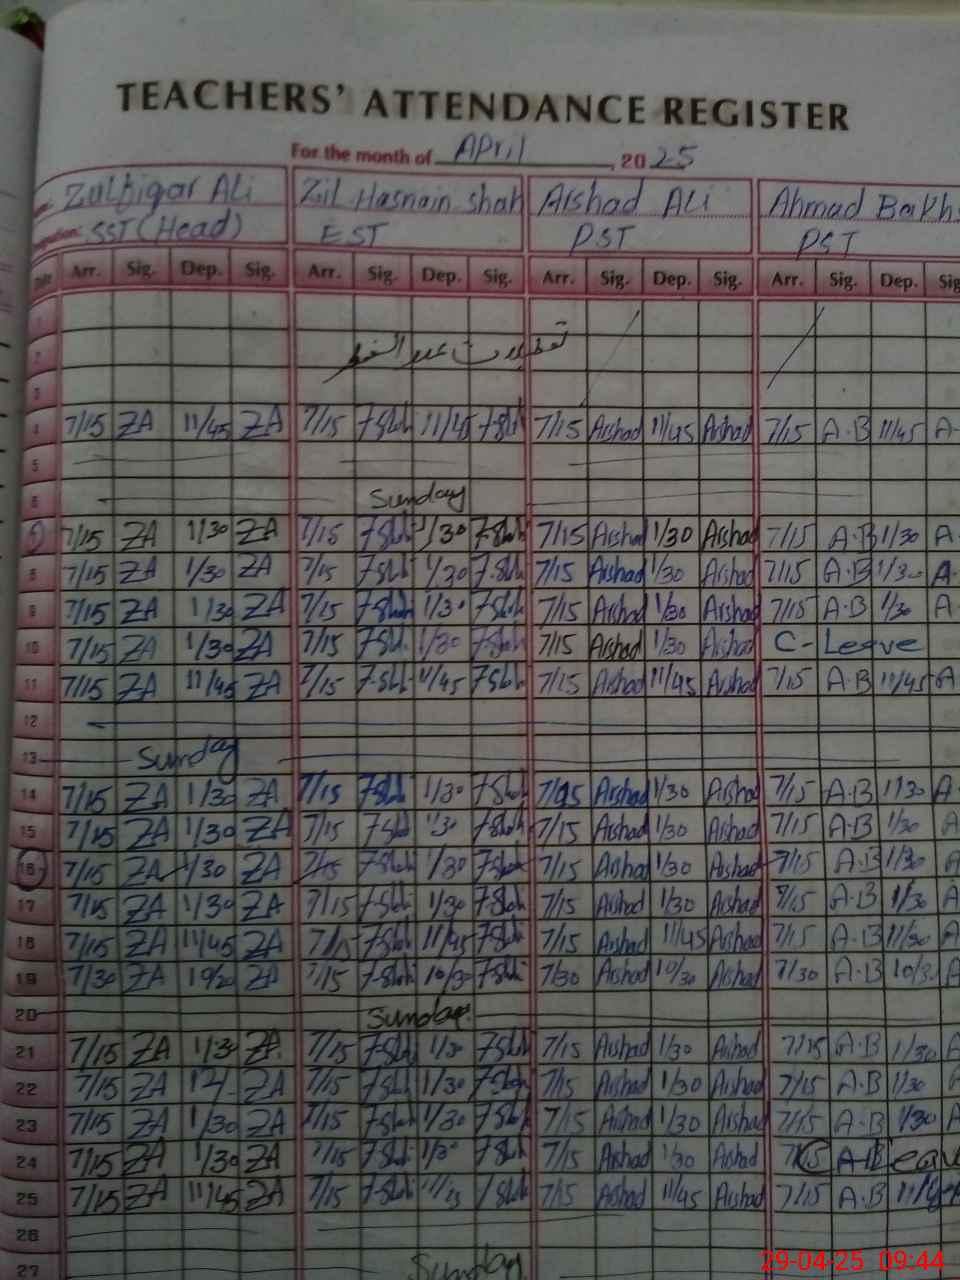 TEACHERS' ATTENDANCE REGISTER
For the month of April, 2025
Zulfiqar Ali Zil Hasnain Shah Arshad Ali Ahmad Bakhs
SST (Head) EST PST PST
Date Arr. Sig. Dep. Sig. Arr. Sig. Dep. Sig. Arr. Sig. Dep. Sig. Arr. Sig. Dep. Sig
1
2 تعطیلات عید الفطر
3
4 7/15 ZA 11/45 ZA 7/15 11/45 7/15 Arshad 11/45 Arshad 7/15 A.B 11/45 A
5
6 Sunday
7 7/15 ZA 1/30 ZA 7/15 1/30 7/15 Arshad 1/30 Arshad 7/15 A.B 1/30 A.
8 7/15 ZA 1/30 ZA 7/15 1/30 7/15 Arshad 1/30 Arshad 7/15 A.B 1/30 A.
9 7/15 ZA 1/30 ZA 7/15 1/30 7/15 Arshad 1/30 Arshad 7/15 A.B 1/30 A
10 7/15 ZA 1/30 ZA 7/15 1/30 7/15 Arshad 1/30 Arshad C-Leave
11 7/15 ZA 11/45 ZA 7/15 11/45 7/15 Arshad 11/45 Arshad 7/15 A.B 11/45 A
12
13 Sunday
14 7/15 ZA 1/30 ZA 7/15 1/30 7/15 Arshad 1/30 Arshad 7/15 A.B 1/30 A
15 7/15 ZA 1/30 ZA 7/15 1/30 7/15 Arshad 1/30 Arshad 7/15 A.B 1/30 A
16 7/15 ZA 1/30 ZA 7/15 1/30 7/15 Arshad 1/30 Arshad 7/15 A.B 1/30 A
17 7/15 ZA 1/30 ZA 7/15 1/30 7/15 Arshad 1/30 Arshad 7/15 A.B 1/30 A
18 7/15 ZA 11/45 ZA 7/15 11/45 7/15 Arshad 11/45 Arshad 7/15 A.B A
19 7/30 ZA ZA 7/15 10/30 7/30 Arshad 10/30 Arshad 7/30 A.B 10/30 A
20 Sunday
21 7/15 ZA 1/30 ZA 7/15 1/30 7/15 Arshad 1/30 Arshad 7/15 A.B 1/30 A
22 7/15 ZA ZA 7/15 1/30 7/15 Arshad 1/30 Arshad 7/15 A.B 1/30 A
23 7/15 ZA 1/30 ZA 7/15 1/30 7/15 Arshad 1/30 Arshad 7/15 A.B 1/30 A
24 7/15 ZA 1/30 ZA 7/15 1/30 7/15 Arshad 1/30 Arshad
25 7/15 ZA 11/45 ZA 7/15 7/15 Arshad 11/45 Arshad 7/15 A.B
26
27 Sunday
29-04-25 09:44